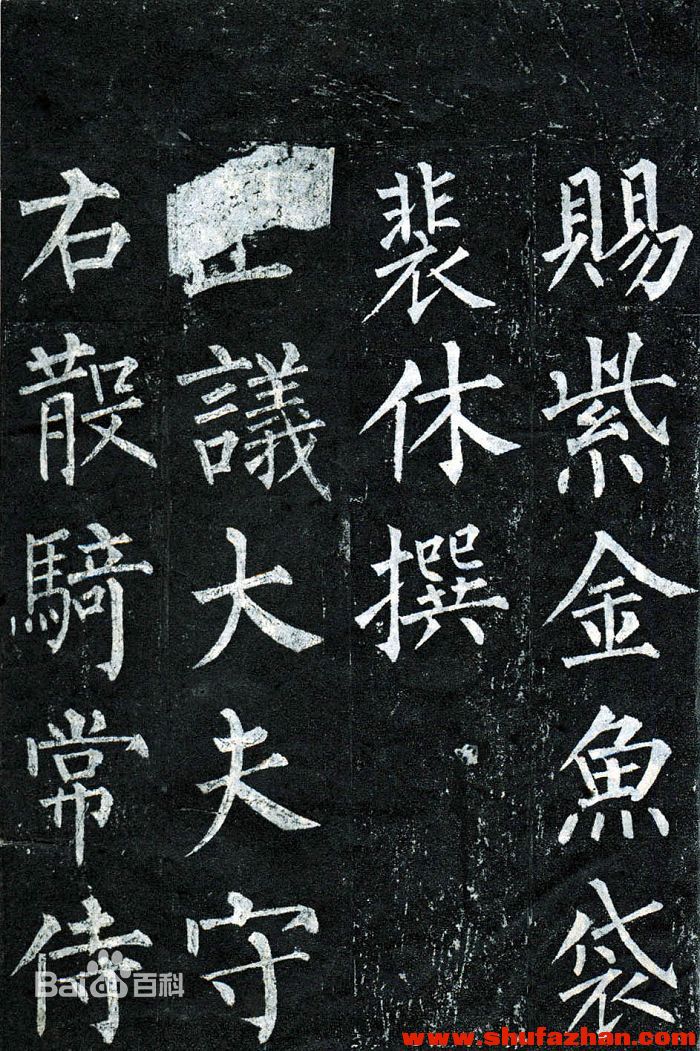 賜紫金魚袋
裴休撰
議大夫守
右散騎常侍
Bai百科
www.shufazhan.com